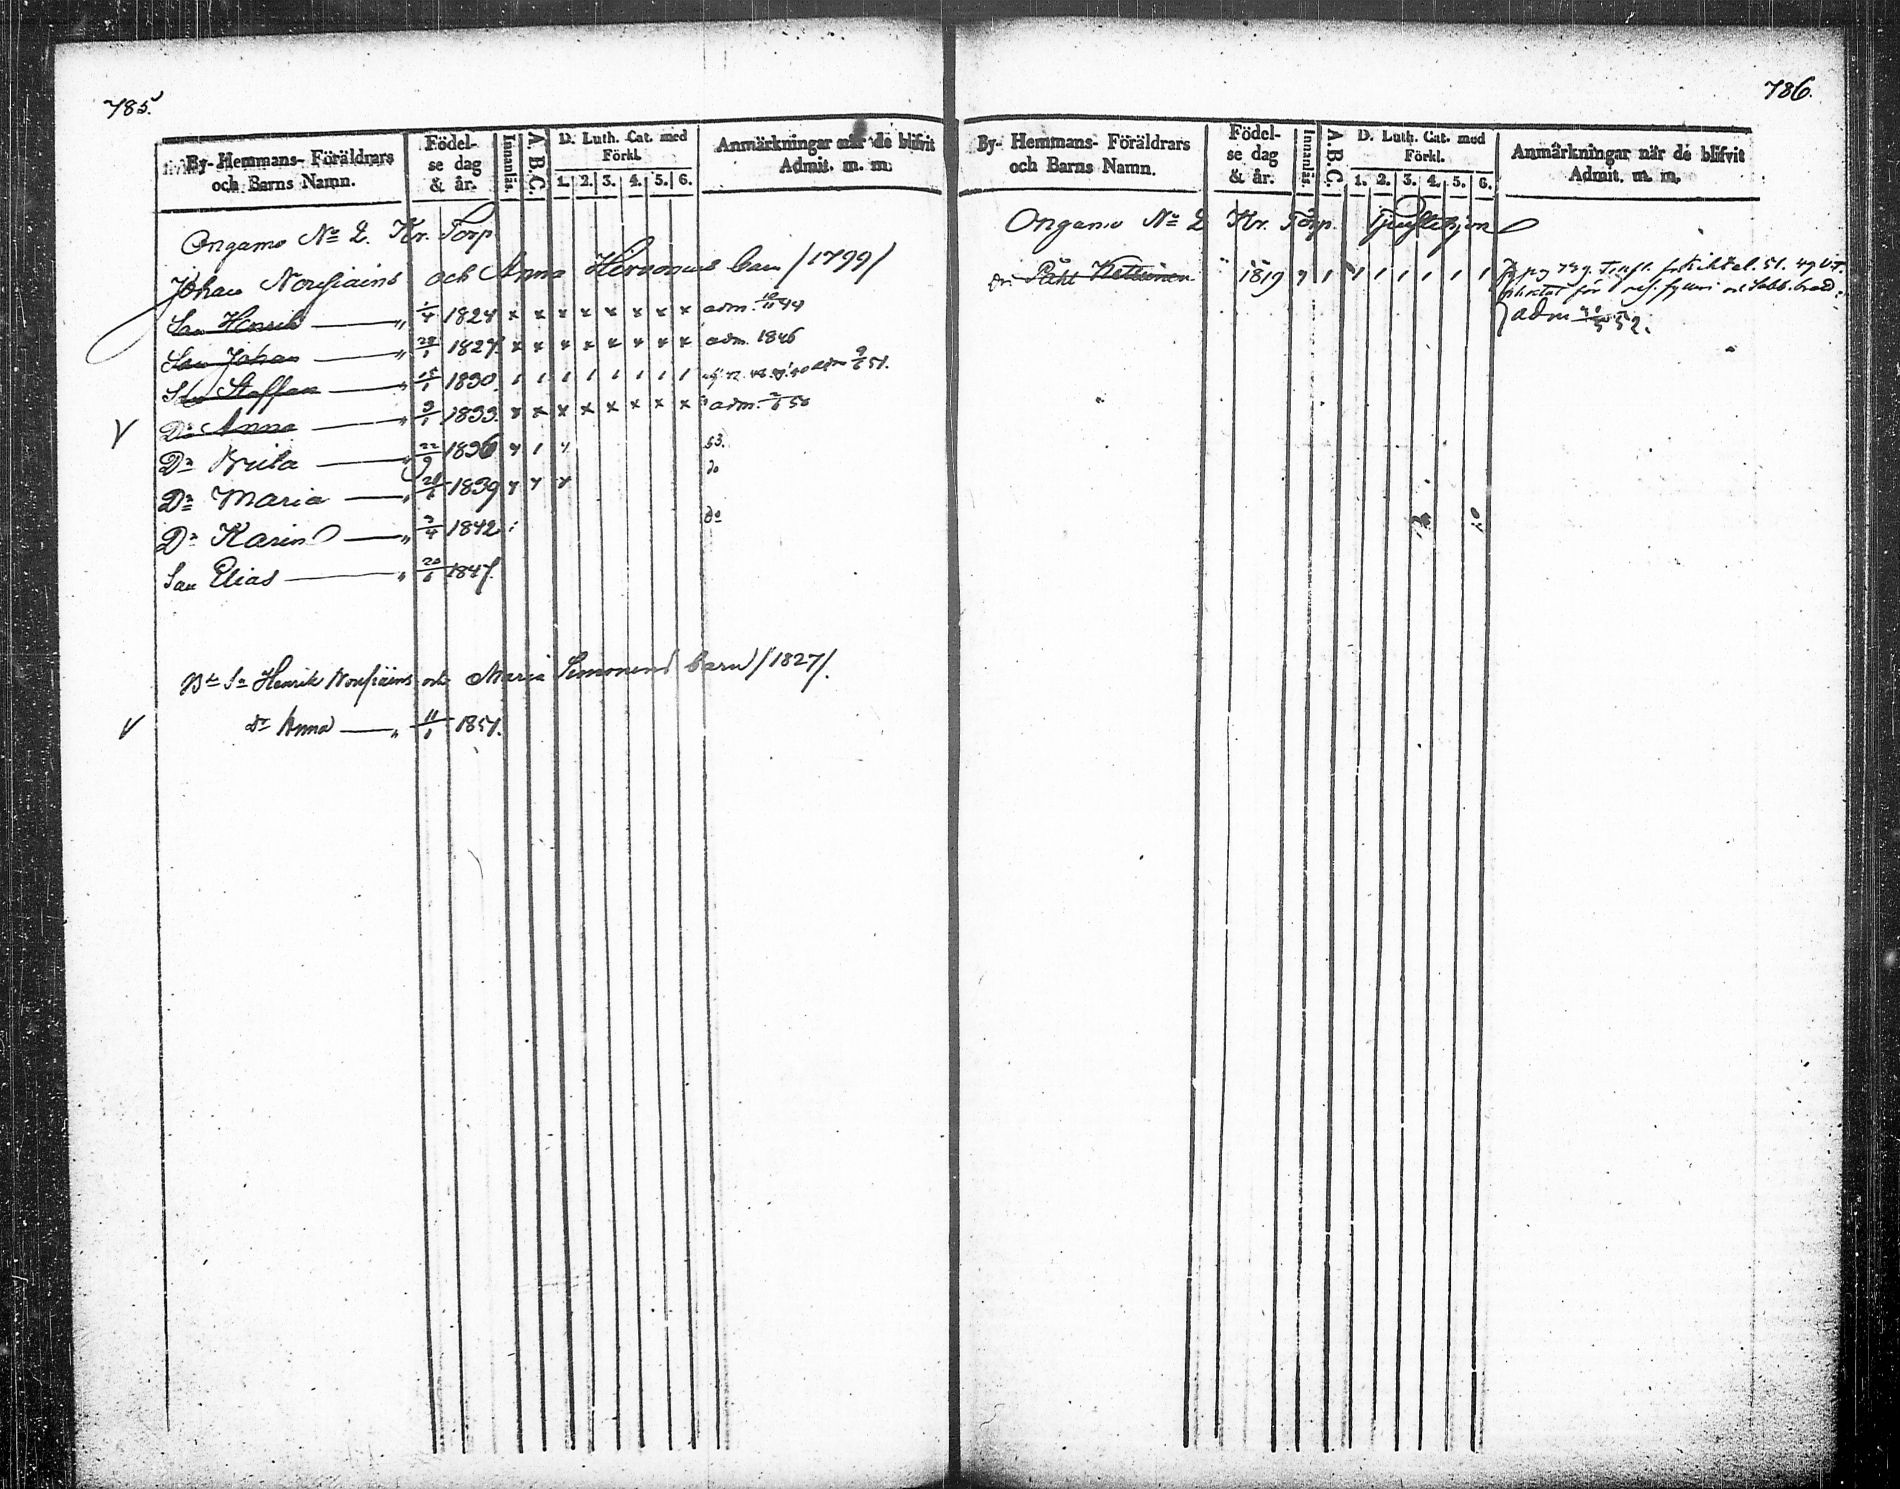 785.
By- Hemmans- Föräldrars och Barns Namn.
Födel- se dag & år.
Innanläs.
A. B. C.
D. Luth. Cat. med Förkl.
1. 2. 3. 4. 5. 6.
Anmärkningar när de blifvit Admit. m. m.
Ongamo No 2. Kr. Torp
Johan Nousiains och Anna Hirvonens barn /1799/
Son Henrik — " 1/4 1824 x x x x x x x x adm. 44
Son Johan — " 1827. x x x x x x x x adm. 1846
Son Staffan — " 15/1 1830 1 1 1 1 1 1 1 1 adm 51.
V Dr Anna — " 9/1 1833. x x x x x x x x adm. 50
Dr Brita — " 22/9 1836 53.
Dr Maria — " 1839 do
Dr Karin — " 3/4 1842 do
Son Elias — " 20/6 1847.
Bde Sn Henrik Nousiains och Maria Simonens barn /1827/.
V dr Anna — " 11/1 1851.
786.
By- Hemmans- Föräldrars och Barns Namn.
Födel- se dag & år.
Innanläs.
A. B. C.
D. Luth. Cat. med Förkl.
1. 2. 3. 4. 5. 6.
Anmärkningar när de blifvit Admit. m. m.
Ongamo No 2 Kr. Torp. Tjenstehjon
Dr. Kettunen " 1819 1 1 1 1 1 1 1
adm 52.